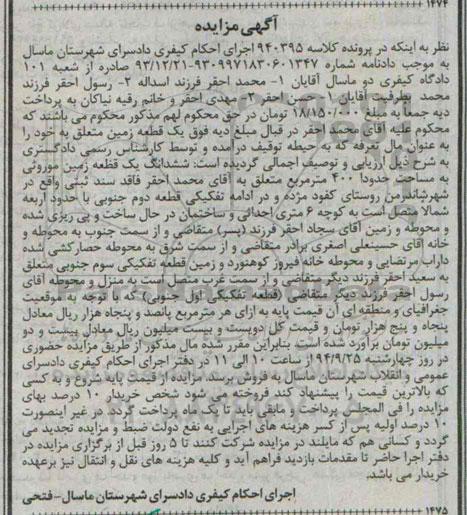 ۱۴۷۴
آگهی مزایده
نظر به اینکه در پرونده کلاسه ۹۴۰۳۹۵ اجرای احکام کیفری دادسرای شهرستان ماسال
به موجب دادنامه شماره ۹۳۰۹۹۷۱۸۳۰۶۰۱۳۴۷-۹۳/۱۲/۲۱ صادره از شعبه ۱۰۱
دادگاه کیفری دو ماسال آقایان ۱- محمد احقر فرزند اسداله ۲- رسول احقر فرزند
محمد بطرفیت آقایان ۱- حسن احقر ۲- مهدی احقر و خانم رقیه نیاکان به پرداخت
دیه جمعا به مبلغ ۱۸/۱۵۰/۰۰۰ تومان در حق محکوم لهم مذکور محکوم می باشند که
محکوم علیه آقای محمد احقر در قبال مبلغ دیه فوق یک قطعه زمین متعلق به خود را
به عنوان مال تعرفه که به حیطه توقیف درآمده و توسط کارشناس رسمی دادگستری
به شرح ذیل ارزیابی و توصیف اجمالی گردیده است: ششدانگ یک قطعه زمین موروثی
به مساحت حدودا ۴۰۰ مترمربع متعلق به آقای محمد احقر فاقد سند ثبتی واقع در
شهرشاندرمن روستای کفود مژده و در ادامه تفکیکی قطعه دوم جنوبی با حدود اربعه
شمالا متصل است به کوچه ۶ متری احداثی و ساختمان در حال ساخت و پی ریزی شده
و محوطه و زمین آقای سجاد احقر فرزند (پسر) متقاضی و از سمت جنوب به محوطه و
خانه آقای حسینعلی اصغری برادر متقاضی و از سمت شرق به محوطه حصارکشی شده
داراب مرتضایی و محوطه خانه فیروز کوهنورد و زمین قطعه تفکیکی سوم جنوبی متعلق
به سعید احقر فرزند دیگر متقاضی و از سمت غرب متصل است به منزل و محوطه آقای
رسول احقر فرزند دیگر متقاضی (قطعه تفکیکی اول جنوبی) که با توجه به موقعیت
جغرافیای و منطقه ای آن قیمت پایه به ازای هر مترمربع پانصد و پنجاه هزار ریال معادل
پنجاه و پنج هزار تومان و قیمت کل دویست و بیست میلیون ریال معادل بیست و دو
میلیون تومان برآورد شده است. بنابراین مقرر شده مال مذکور از طریق مزایده حضوری
در روز چهارشنبه ۹۴/۹/۲۵ از ساعت ۱۰ الی ۱۱ در دفتر اجرای احکام کیفری دادسرای
عمومی و انقلاب شهرستان ماسال به فروش برسد. مزایده از قیمت پایه شروع و به کسی
که بالاترین قیمت را پیشنهاد کند فروخته می شود شخص خریدار ۱۰ درصد بهای
مزایده را فی المجلس پرداخت و مابقی باید تا یک ماه پرداخت گردد در غیر اینصورت
۱۰ درصد اولیه پس از کسر هزینه های اجرایی به نفع دولت ضبط و مزایده تجدید می
گردد و کسانی هم که مایلند در مزایده شرکت کنند تا ۵ روز قبل از برگزاری مزایده در
دفتر اجرا حاضر تا مقدمات بازدید فراهم آید و کلیه هزینه های نقل و انتقال نیز برعهده
خریدار می باشد.
اجرای احکام کیفری دادسرای شهرستان ماسال-فتحی
۱۴۷۵